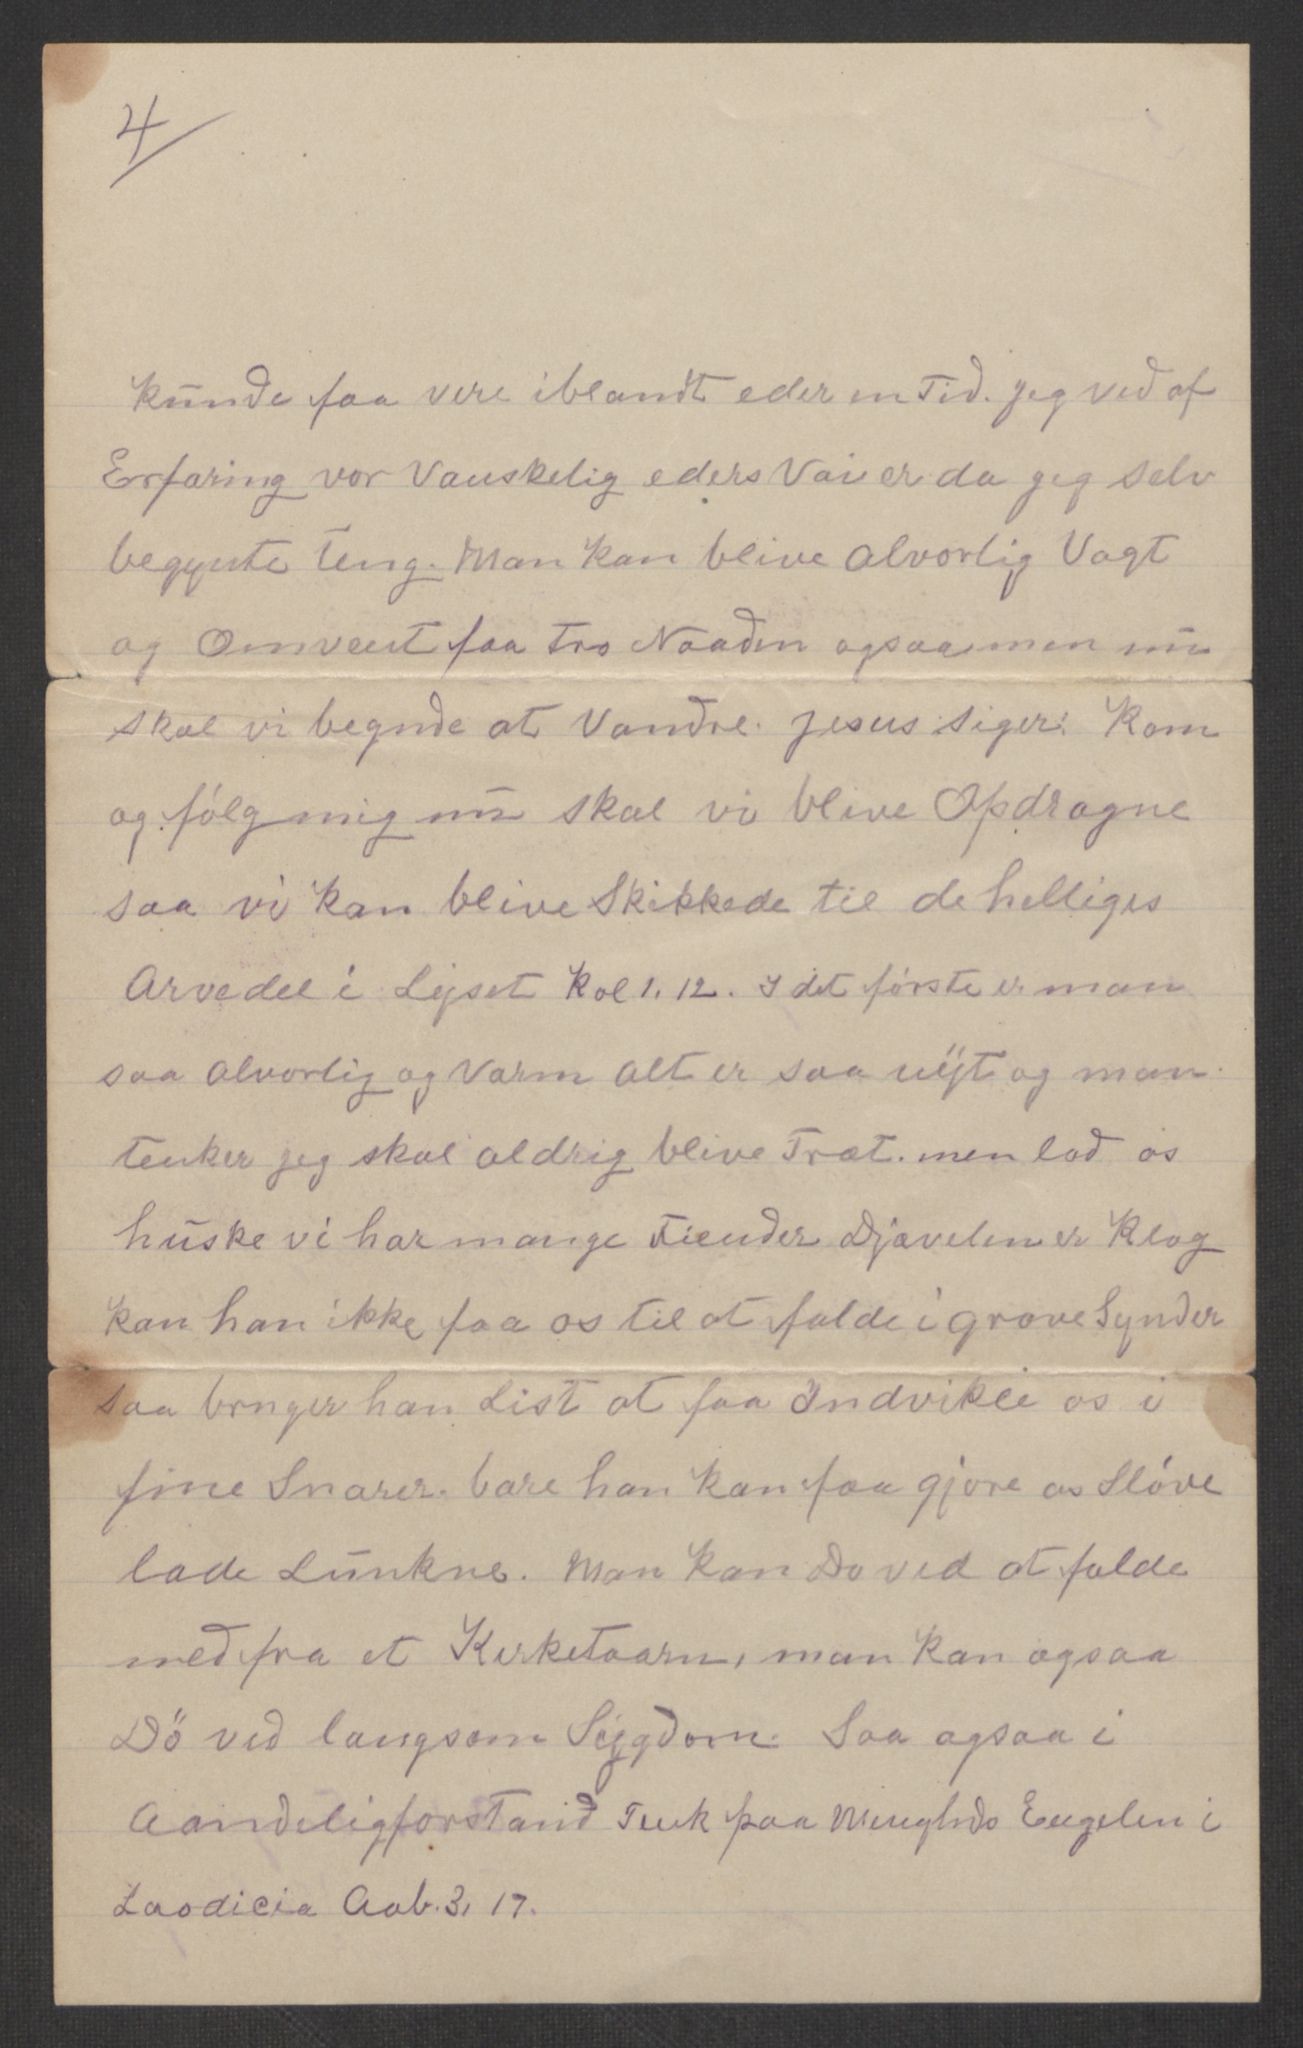 4
kunde faa vere iblandt eder en Tid. jeg ved af
Erfaring vor Vanskelig eders Vai er da jeg selv
begynte Ung. Man kan blive alvorlig Vagt
og Omvent faa tro Naaden ogsaa men nu
skal vi begynde at Vandre. Jesus siger: Kom
og fólg mig nu skal vi blive Opdragne
saa vi kan blive Skikkede til de helliges
Arvedel i Lyset Kol 1. 12. I det fórste er man
saa alvorlig og Varm alt er saa nyt og man
tenker jeg skal aldrig blive Træt. men lad os
huske vi har mange Fiender Djævelen er Klog
kan han ikke faa os til at falde i grove Synder
saa bruger han List at faa Indvikle os i
fine Snarer. bare han kan faa gjóre os Slóve
lade Lunkne. Man kan Dø ved at falde
ned fra et Kerketaarn, man kan ogsaa
Dö ved langsom Sygdom. Saa ogsaa i
Aandeligforstand Tenk paa Engelen i
Laodicia Aab. 3, 17.